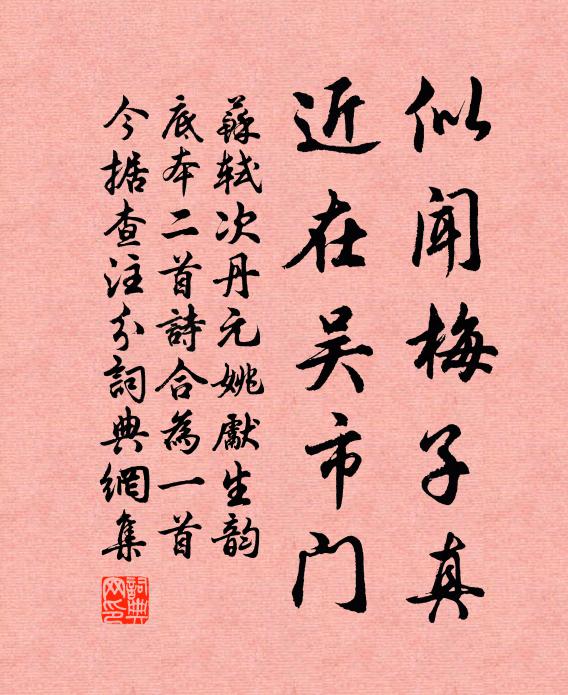 似闻梅子真
近在吴市门
蘇軾次丹元姚獻生韵
底本二首詩合為一首
今据查注分詞典網集
詞典网印